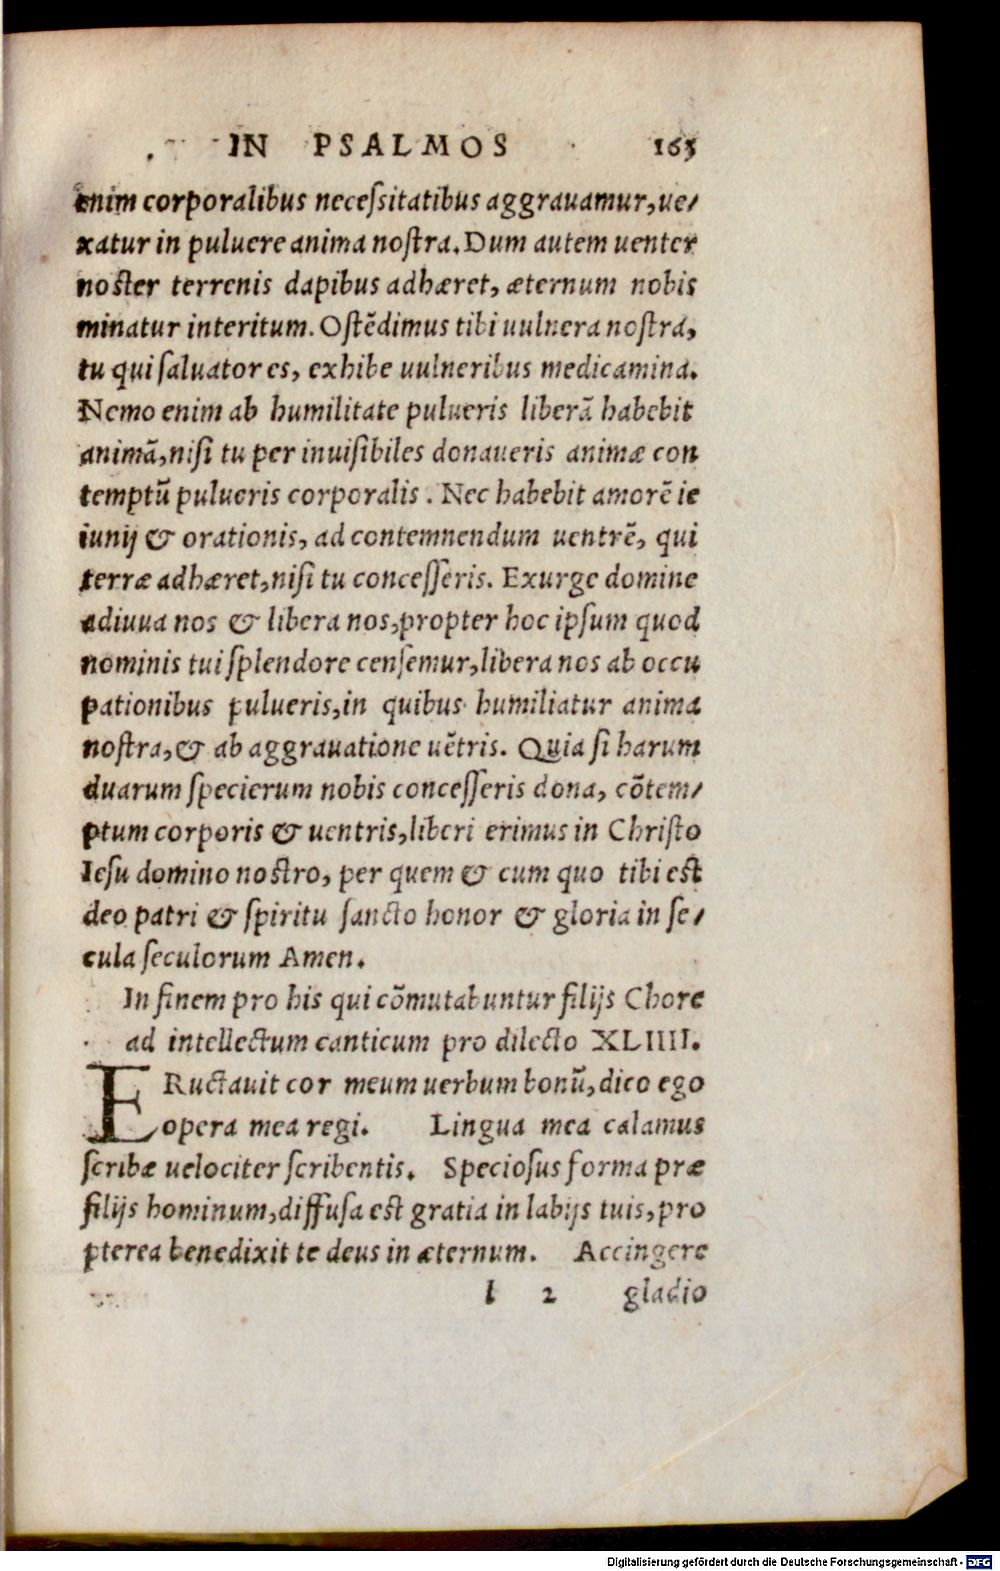 IN PSALMOS 163
enim corporalibus neceſsitatibus aggrauamur,ue/
xatur in puluere anima noſtra. Dum autem uenter
noſter terrenis dapibus adhæret, æternum nobis
minatur interitum. Oſtẽdimus tibi uulnera noſtra,
tu qui ſaluator es, exhibe uulneribus medicamina.
Nemo enim ab humilitate pulueris liberã habebit
animã,niſi tu per inuiſibiles donaueris animæ con
temptũ pulueris corporalis. Nec habebit amorẽ ie
iunij & orationis, ad contemnendum uentrẽ, qui
terræ adhæret,niſi tu conceſſeris. Exurge domine
adiuua nos & libera nos,propter hoc ipſum quod
nominis tui ſplendore cenſemur,libera nos ab occu
pationibus pulueris,in quibus humiliatur anima
noſtra,& ab aggrauatione uẽtris. Quia ſi harum
duarum ſpecierum nobis conceſſeris dona, cõtem/
ptum corporis & uentris,liberi erimus in Chriſto
Ieſu domino noſtro, per quem & cum quo tibi eſt
deo patri & ſpiritu ſancto honor & gloria in ſe/
cula ſeculorum Amen.
In finem pro his qui cõmutabuntur filijs Chore
ad intellectum canticum pro dilecto XLIIII.
ERuctauit cor meum uerbum bonũ,dico ego
opera mea regi. Lingua mea calamus
ſcribæ uelociter ſcribentis. Specioſus forma præ
filijs hominum,diffuſa eſt gratia in labijs tuis,pro
pterea benedixit te deus in æternum. Accingere
l 2 gladio
Digitalisierung gefördert durch die Deutsche Forschungsgemeinschaft - DFG